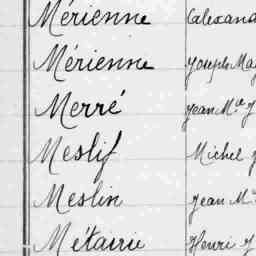 Mérienne Calexand
Mérienne Joseph Ma
Merré Jean Mie J
Meslif Michel J
Meslin Jean M
Métairie Henri J